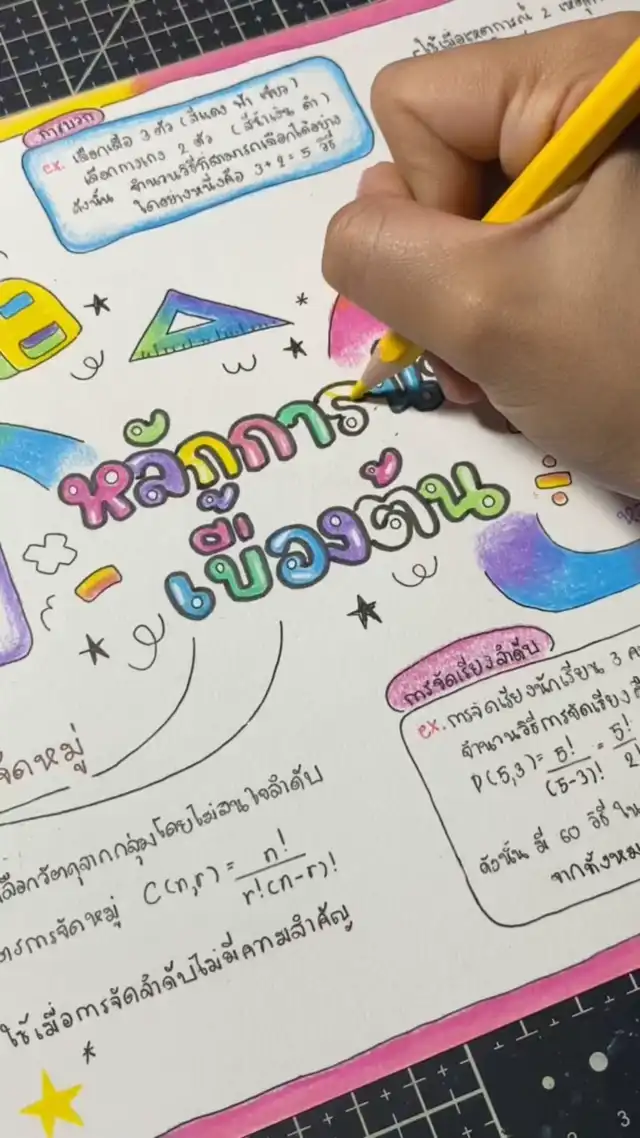 ใช้เมื่อเหตุการณ์ 2
การบวก
ex. เลือกเสื้อ 3 ตัว (สีแดง ฟ้า เขียว)
เลือกกางเกง 2 ตัว (สีน้ำเงิน ดำ)
ดังนั้น จำนวนวิธีที่สามารถเลือกได้อย่าง
ใดอย่างหนึ่งคือ 3+2=5 วิธี
หลักการ
เบื้องต้น
การจัดเรียงลำดับ
ex. การจัดเรียงนักเรียน 3
จำนวนวิธีการจัดเรียง
P(5,3) = 5!/(5-3)! = 5!/2!
ดังนั้น มี 60 วิธี ใน
จากทั้งหม
จัดหมู่
เลือกวัตถุจากกลุ่มโดยไม่สนใจลำดับ
ตรการจัดหมู่ C(n,r) = n!/r!(n-r)!
ใช้เมื่อการจัดลำดับไม่มีความสำคัญ
3